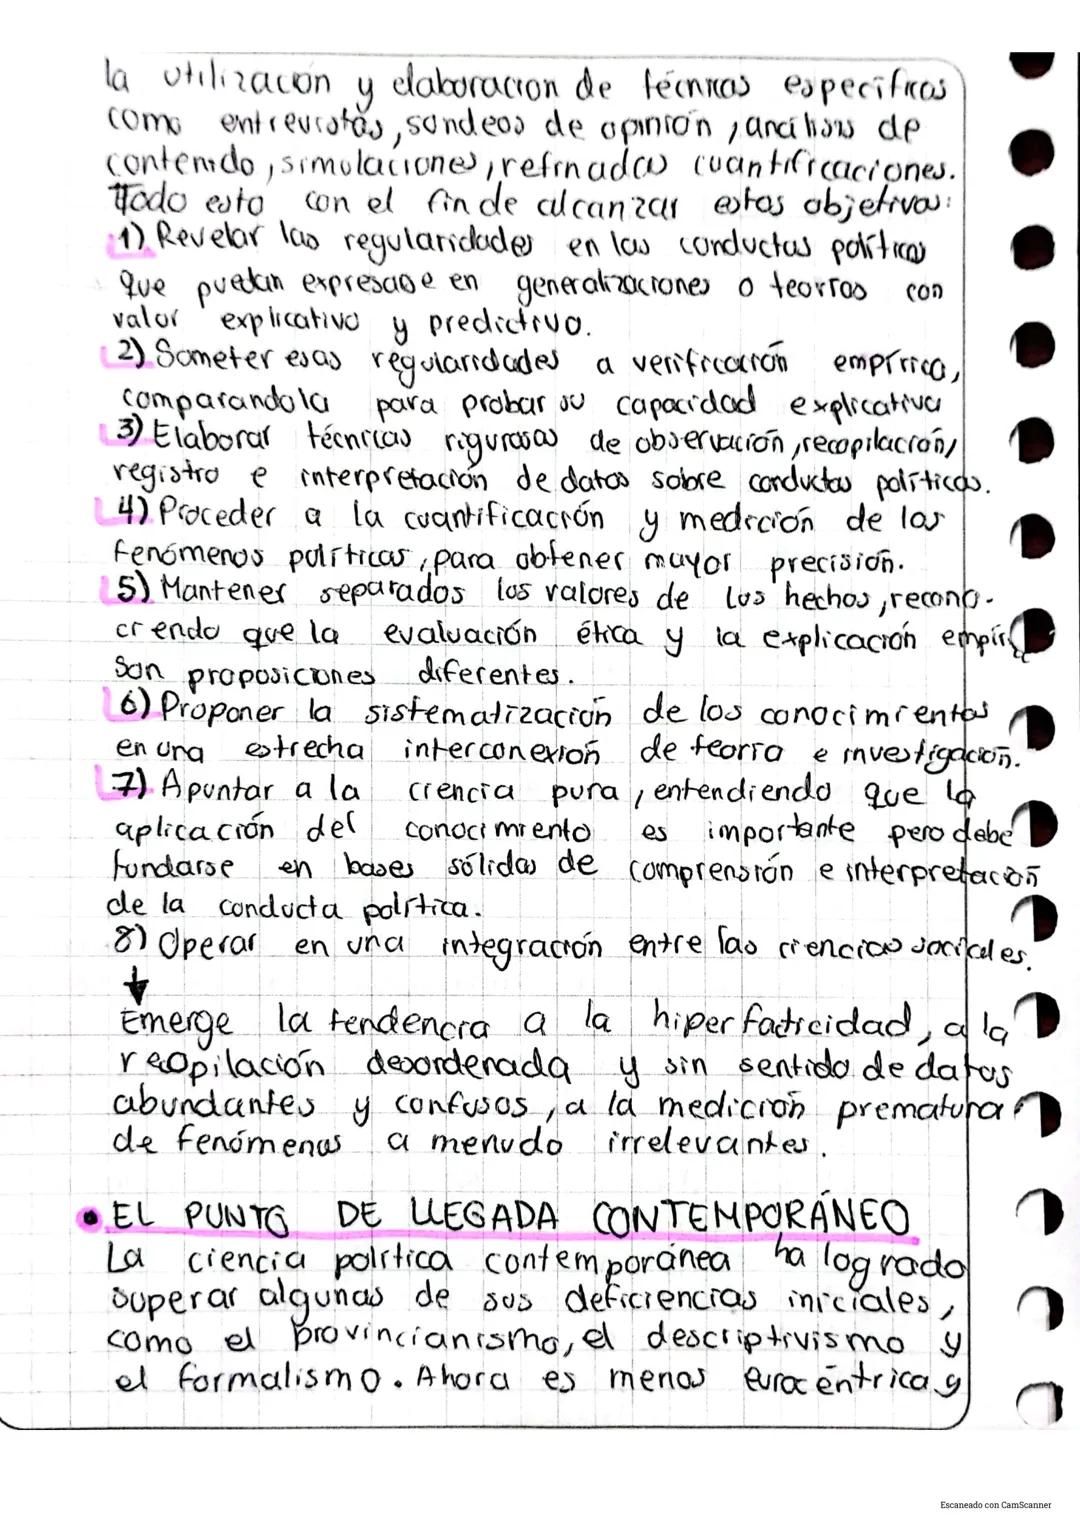 la utilización y elaboración de técnicas específicas
como entrevistas, sondeos de opinión, análisis de
contenido, simulaciones, refinadas cuantificaciones.
Todo esto con el fin de alcanzar estos objetivos:
1) Revelar las regularidades en las conductas políticas
que puedan expresarse en generalizaciones o teorías con
valor explicativo y predictivo.
2) Someter esas regularidades a verificación empírica,
comparandola para probar su capacidad explicativa
3) Elaborar técnicas rigurosas de observación, recopilación,
registro e interpretación de datos sobre conductas políticas.
4) Proceder a la cuantificación y medición de los
fenómenos políticos, para obtener mayor precisión.
5) Mantener separados los valores de los hechos, recono-
ciendo que la evaluación ética y la explicación
son proposiciones diferentes.
6) Proponer la sistematización de los conocimientos
en una estrecha interconexión de teoría e investigación.
7) Apuntar a la ciencia pura, entendiendo que la
aplicación del conocimiento es importante pero debe
fundarse en bases sólidas de comprensión e interpretación
de la conducta política.
8) Operar en una integración entre las ciencias sociales.
Emerge la tendencia a la hiperfacticidad, a la
recopilación desordenada y sin sentido de datos
abundantes y confusos, a la medición prematura
de fenómenos a menudo irrelevantes.
• EL PUNTO DE LLEGADA CONTEMPORÁNEO
La ciencia política contemporánea ha logrado
superar algunas de sus deficiencias iniciales,
como el provincianismo, el descriptivismo y
el formalismo. Ahora es menos eurocéntrica y
Escaneado con CamScanner